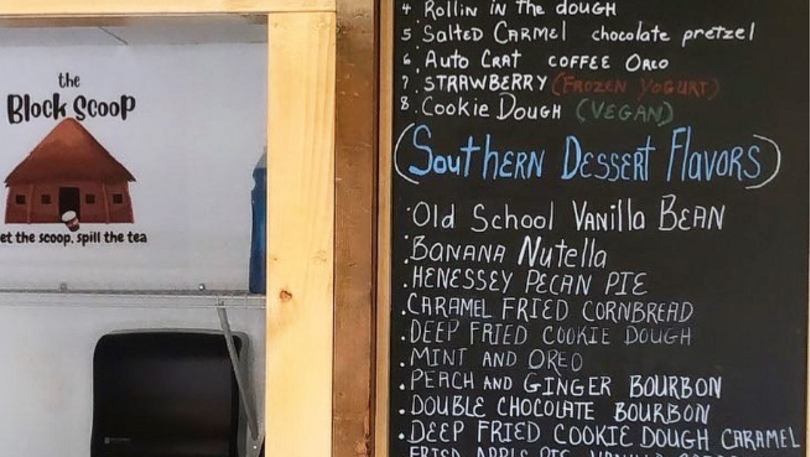 the
Block Scoop
et the scoop, spill the tea
4 Rollin in the dough
5 Salted Carmel chocolate pretzel
6. Auto Crat coffee Oreo
7. STRAWBERRY (FROZEN YOGURT)
8. Cookie Dough (VEGAN)
(Southern Dessert Flavors)
·Old School Vanilla BEAN
·BANANA Nutella
·HENESSEY PECAN PIE
·CARAMEL FRIED CORNBREAD
·DEEP FRIED COOKIE DOUGH
·MINT AND OREO
·PEACH AND GINGER BOURBON
·DOUBLE CHOCOLATE BOURBON
·DEEP FRIED COOKIE DOUGH CARAMEL
FRIED APPLE PIE VANILLA